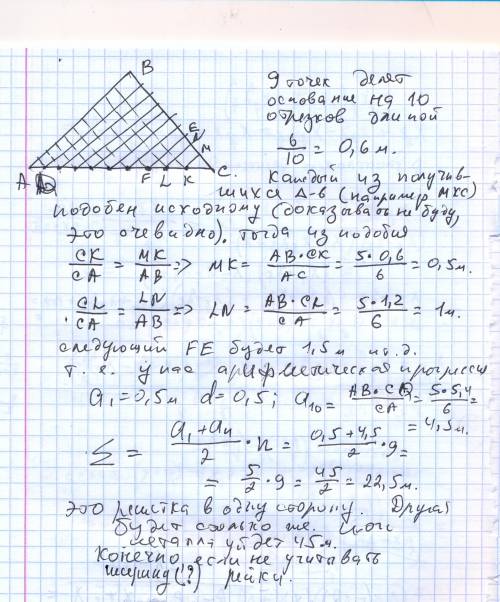 B
E
N
M
A Q F L K C.
9 точек делят
основание на 10
отрезков длиной
6/10 = 0,6 м.
Каждый из получив-
шихся Δ-в (например MKC)
подобен исходному (доказывать не буду,
это очевидно). Тогда из подобия
CK/CA = MK/AB => MK = AB·CK/AC = 5·0,6/6 = 0,5 м.
CL/CA = LN/AB => LN = AB·CL/CA = 5·1,2/6 = 1 м.
следующий FE будет 1,5 м и т.д.
т.е. у нас арифметическая прогрессия
a₁ = 0,5 м d = 0,5; a₁₀ = AB·CQ/CA = 5·5,4/6 =
= 4,5 м.
Σ = (a₁ + aₙ)/2 · n = (0,5 + 4,5)/2 · 9 =
= 5/2 · 9 = 45/2 = 22,5 м.
это решетка в одну сторону. Другая
будет столько же. Итого
металла уйдет 45 м.
Конечно, если не учитывать
ширину (!?) рейки.